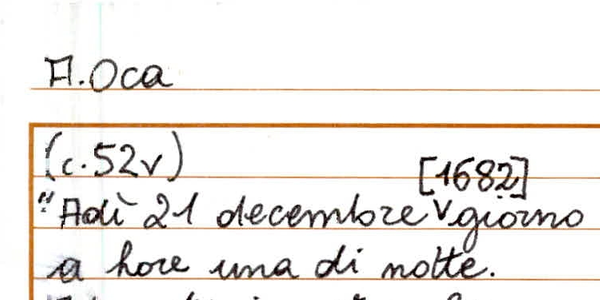 A. Oca
(c. 52v)
[1682]
"Adì 21 decembre ˅ giorno
a hore una di notte.